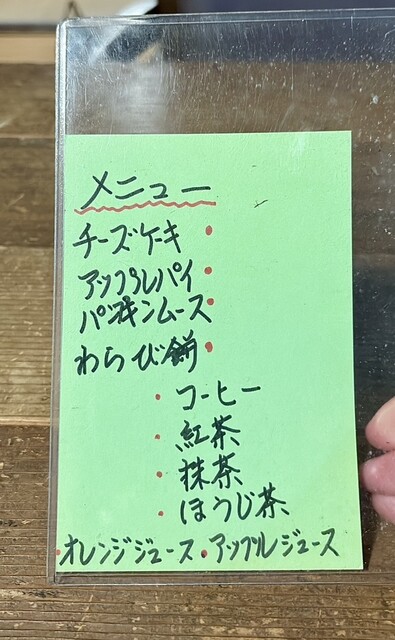 メニュー
チーズケーキ・
アップルパイ・
パンプキンムース・
わらび餅・
・コーヒー
・紅茶
・抹茶
・ほうじ茶
・オレンジジュース・アップルジュース